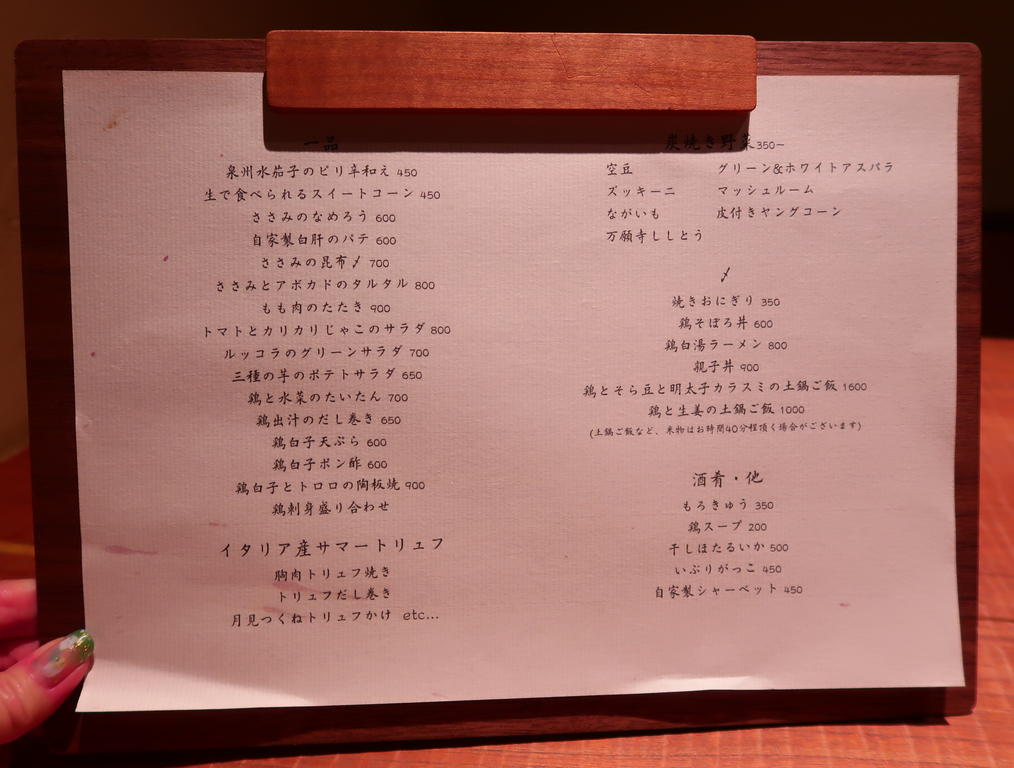 一品
泉州水茄子のピリ辛和え 450
生で食べられるスイートコーン 450
ささみのなめろう 600
自家製白肝のパテ 600
ささみの昆布〆 700
ささみとアボカドのタルタル 800
もも肉のたたき 900
トマトとカリカリじゃこのサラダ 800
ルッコラのグリーンサラダ 700
三種の芋のポテトサラダ 650
鶏と水菜のたいたん 700
鶏出汁のだし巻き 650
鶏白子天ぷら 600
鶏白子ポン酢 600
鶏白子とトロロの陶板焼 900
鶏刺身盛り合わせ
イタリア産サマートリュフ
胸肉トリュフ焼き
トリュフだし巻き
月見つくねトリュフかけ etc...
炭焼き野菜350~
空豆 グリーン&ホワイトアスパラ
ズッキーニ マッシュルーム
ながいも 皮付きヤングコーン
万願寺ししとう
〆
焼きおにぎり 350
鶏そぼろ丼 600
鶏白湯ラーメン 800
親子丼 900
鶏とそら豆と明太子カラスミの土鍋ご飯 1600
鶏と生姜の土鍋ご飯 1000
(土鍋ご飯など、米物はお時間40分程頂く場合がございます)
酒肴・他
もろきゅう 350
鶏スープ 200
干しほたるいか 500
いぶりがっこ 450
自家製シャーベット 450